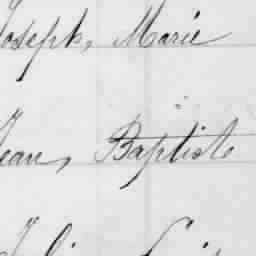 Joseph, Marie
Jean, Baptiste